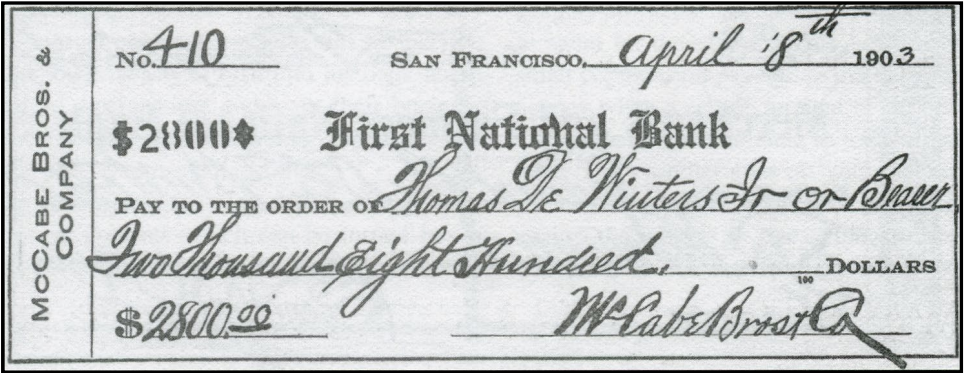 McCABE BROS. &
COMPANY
No. 410 SAN FRANCISCO, April 18th 1903
$2800 First National Bank
PAY TO THE ORDER OF Thomas De Winters Jr or Bearer
Two Thousand Eight Hundred, 100 DOLLARS
$2800.00 McCabe Bros & Co